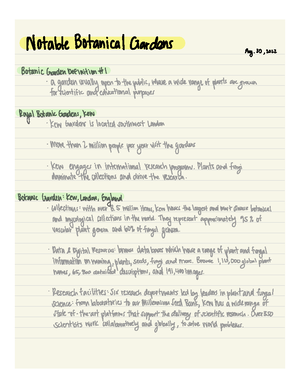 Notable Botanical Gardens
Aug. 30, 2022
Botanic Garden Definition #1
- a garden usually open to the public, where a wide range of plants are grown
for scientific and educational purposes
Royal Botanic Gardens, Kew
- Kew Gardens is located southwest London
- More than 2 million people per year visit the gardens
- Kew engages in international research programs. Plants and fungi
dominate the collections and drive the research.
Botanic Gardens: Kew, London, England
- Collections: With over 8.5 million items, Kew houses the largest and most diverse botanical
and mycological collections in the world. They represent approximately 95% of
vascular plant genera and 60% of fungal genera.
- Data & Digital Resources: browse databases which have a range of plant and fungal
information on naming, plants, seeds, fungi and more. Browse 1,110,000 global plant
names, descriptions, and images.
- Research facilities: Six research departments led by leaders in plant and fungal
science. From laboratories to our Millennium Seed Bank, Kew has a wide range of
state-of-the-art platforms that support the delivery of scientific research. Over 350
scientists work collaboratively and globally, to solve world problems.